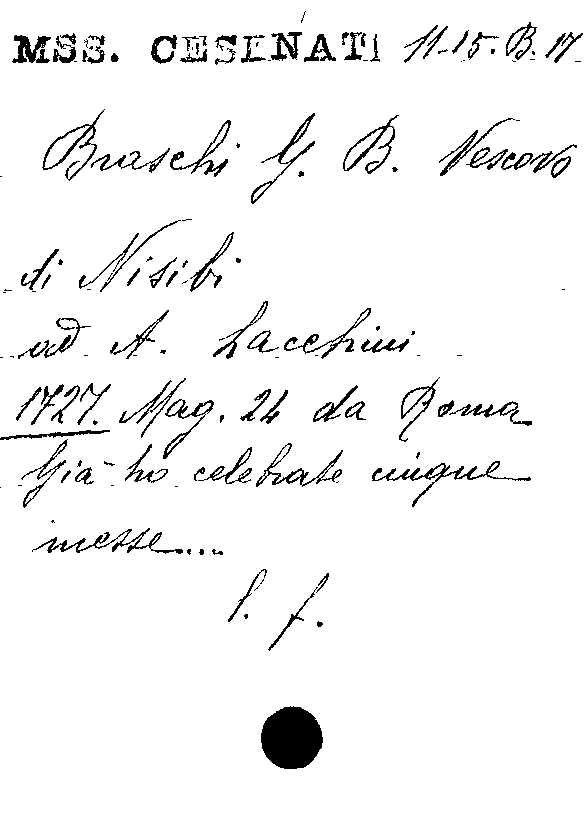 MSS. CESENATI 11-15. B. 17
Braschi G. B. Vescovo
di Nisibi
ad A. Lacchini
1727. Mag. 24 da Roma
Già ho celebrate cinque
messe....
l. f.